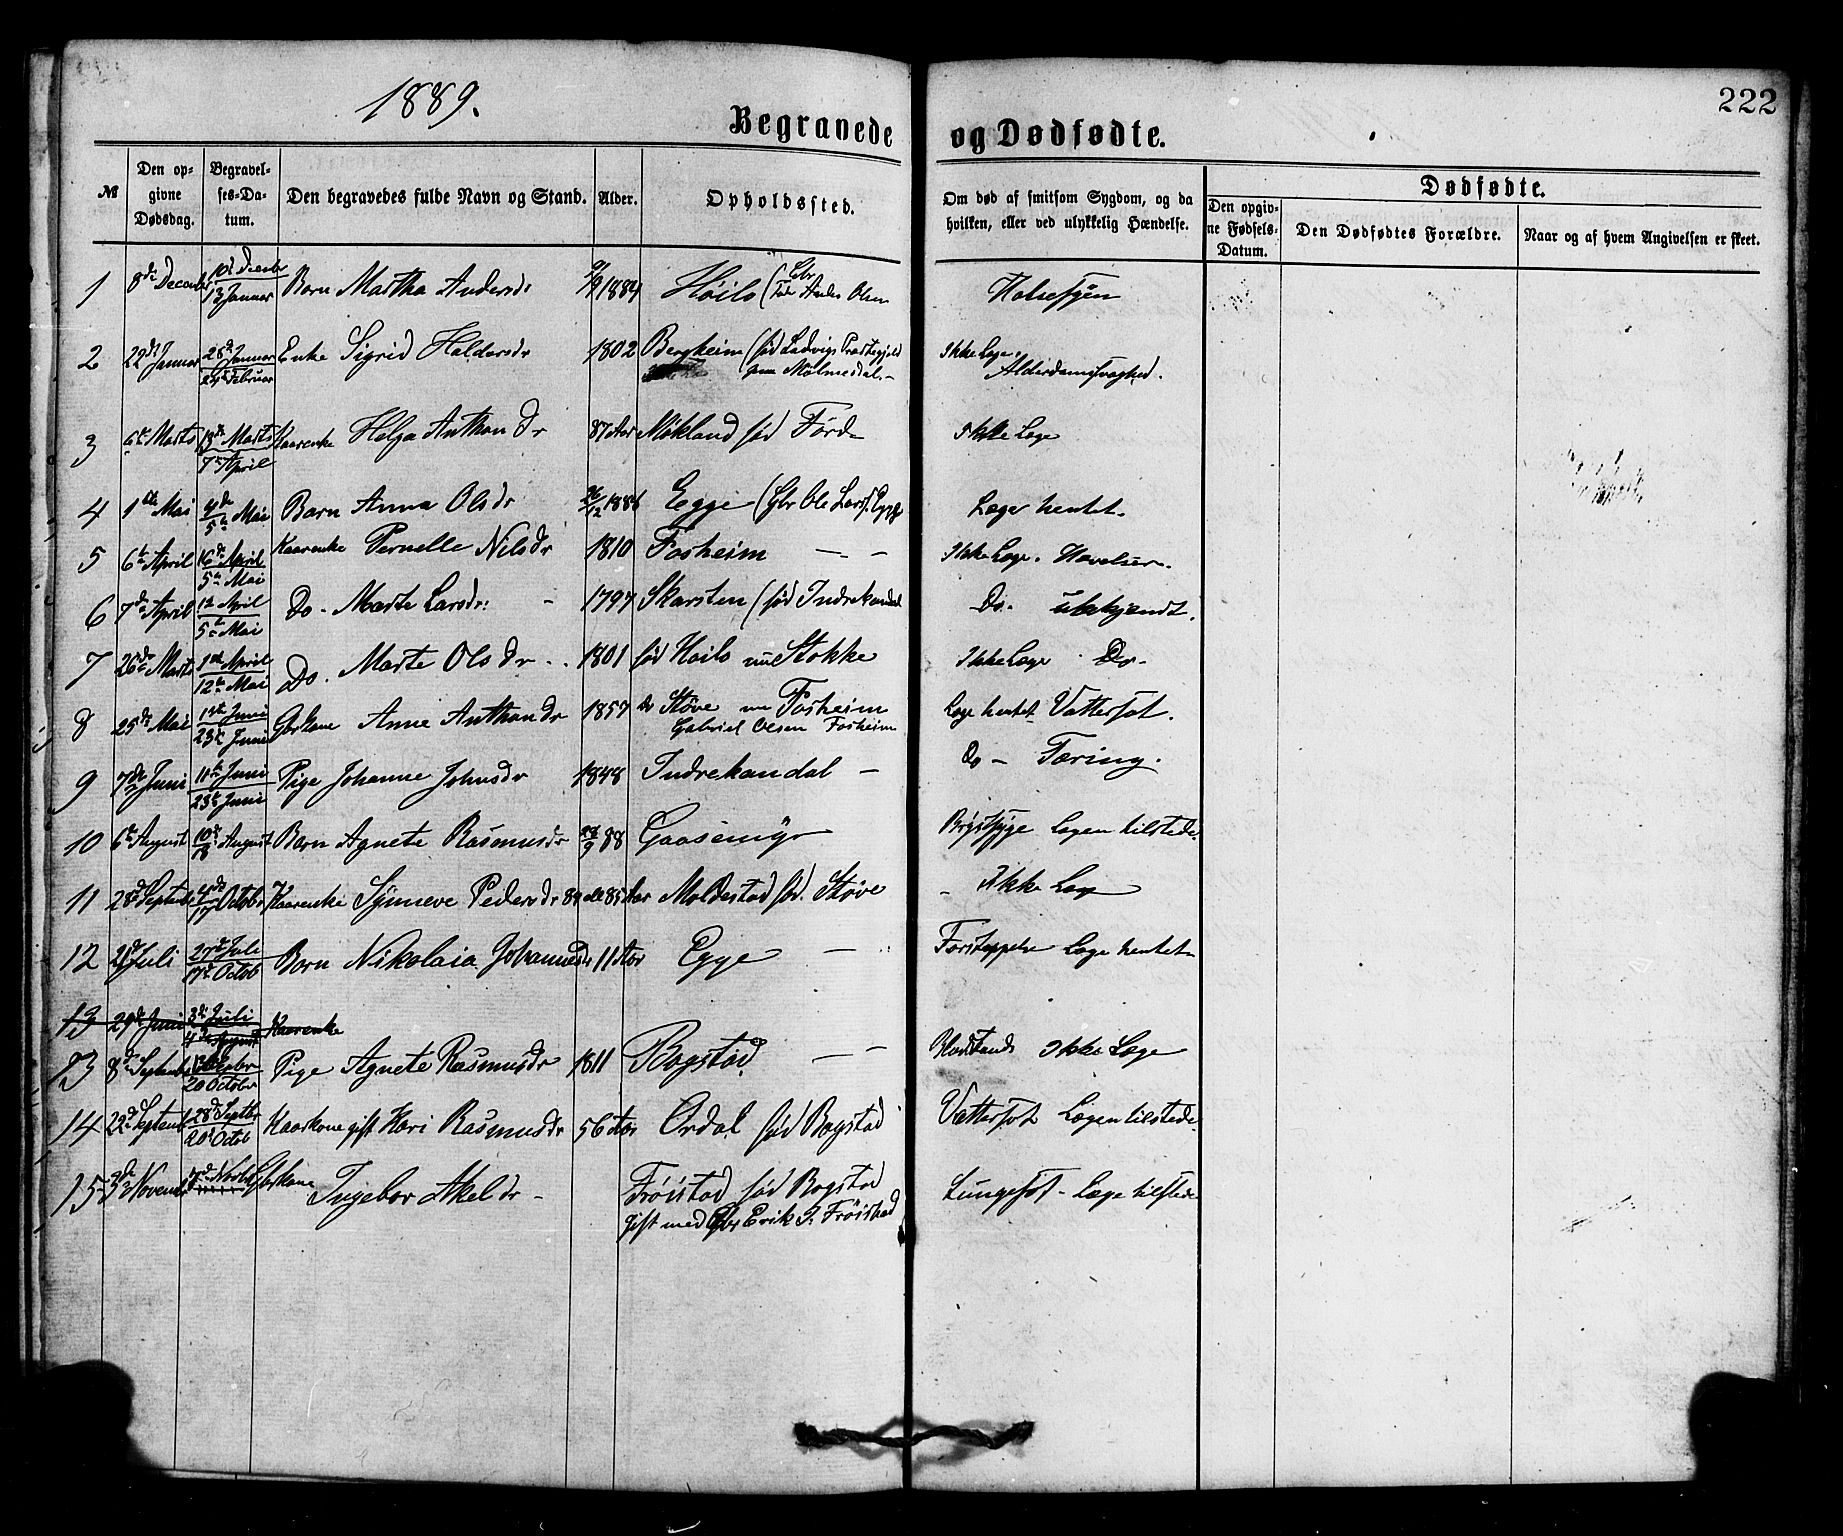 222
1889.
Begravede og Dødfødte.
№ Den opgivne Dødsdag. Begravelses-Datum. Den begravedes fulde Navn og Stand. Alder. Opholdssted. Om død af smitsom Sygdom, og da hvilken, eller ved ulykkelig Hændelse. Dødfødte.
Den opgivne Fødsels-Datum. Den Dødfødtes Forældre. Naar og af hvem Angivelsen er skeet.
1 8de Decembr 13 Januar Barn Martha Andersdr 1884 Høilo (Gbr Anders Olsen
2 22de Januar 28de Januar 24de Februar Enke Sigrid Haldorsdr 1802 Bergheim (fød Ladvigs Præstegjeld Ikke Læge. Alderdomssvaghed.
3 6te Marts 13de Marts 7de April Kaarenke Helga Anthondr 87 Aar Møkland fød Førde Ikke Læge
4 1ste Mai 4de 5te Mai Barn Anna Olsdr 26/12 1886 Egge (Gbr Ole Lars. Egge Læge hentet.
5 6te April 16de April 5te Mai Kaarenke Pernelle Nilsdr 1810 Fosheim — — Ikke Læge. Hævelser.
6 7de April 12 April 5te Mai Do. Marte Larsdr: - 1797 Skarsten (fød Indrekandal Do. ubekjendt.
7 26de Marts 1ste April 12te Mai Do. Marte Olsdr. 1801 fød Høilo nu Stokke Ikke Læge Do.
8 25de Mai 1ste Juni 23de Juni Gbrkone Anne Anthondr 1857 Støve nu Fosheim Læge hentet Vattersot.
Gabriel Olsen Fosheim
9 7de Juni 11te Juni 23de Juni Pige Johanne Johnsdr 1848 Indrekandal — Do — Tæring.
10 6te August 10de 18 August Barn Agnete Rasmusdr 28/9 88 Gaasemyr Brystsyge Lægen tilstede.
11 28de Septembr 4de 17 Octobr Kaarenke Synneve Pedersdr 84 ell 85 Aar Moldestad fød. Støve - Ikke Læge
12 21de Juli 27de Juli 17de Octob Barn Nikolaia Johannesdr 11 Aar Egge — Forstoppelse Læge hentet
13 29de Juni 3de Juli 4de August Kaarenke
13 8de Septembr 20 Octobr Pige Agnete Rasmusdr 1811 Bogstad — — Blodstand Ikke Læge
14 22de Septemb 28de Septbr 20de Octob Kaarkone gift Kari Rasmusdr 56 Aar Ordal fød Bogstad Vattersot Lægen tilstede.
15 3de Novemb 7de Novbr Gbrkone Ingebor Akseldr - Frøistad fød Bogstad Lungesot - Læge tilstede
gift med Gbr Erik J. Frøistad